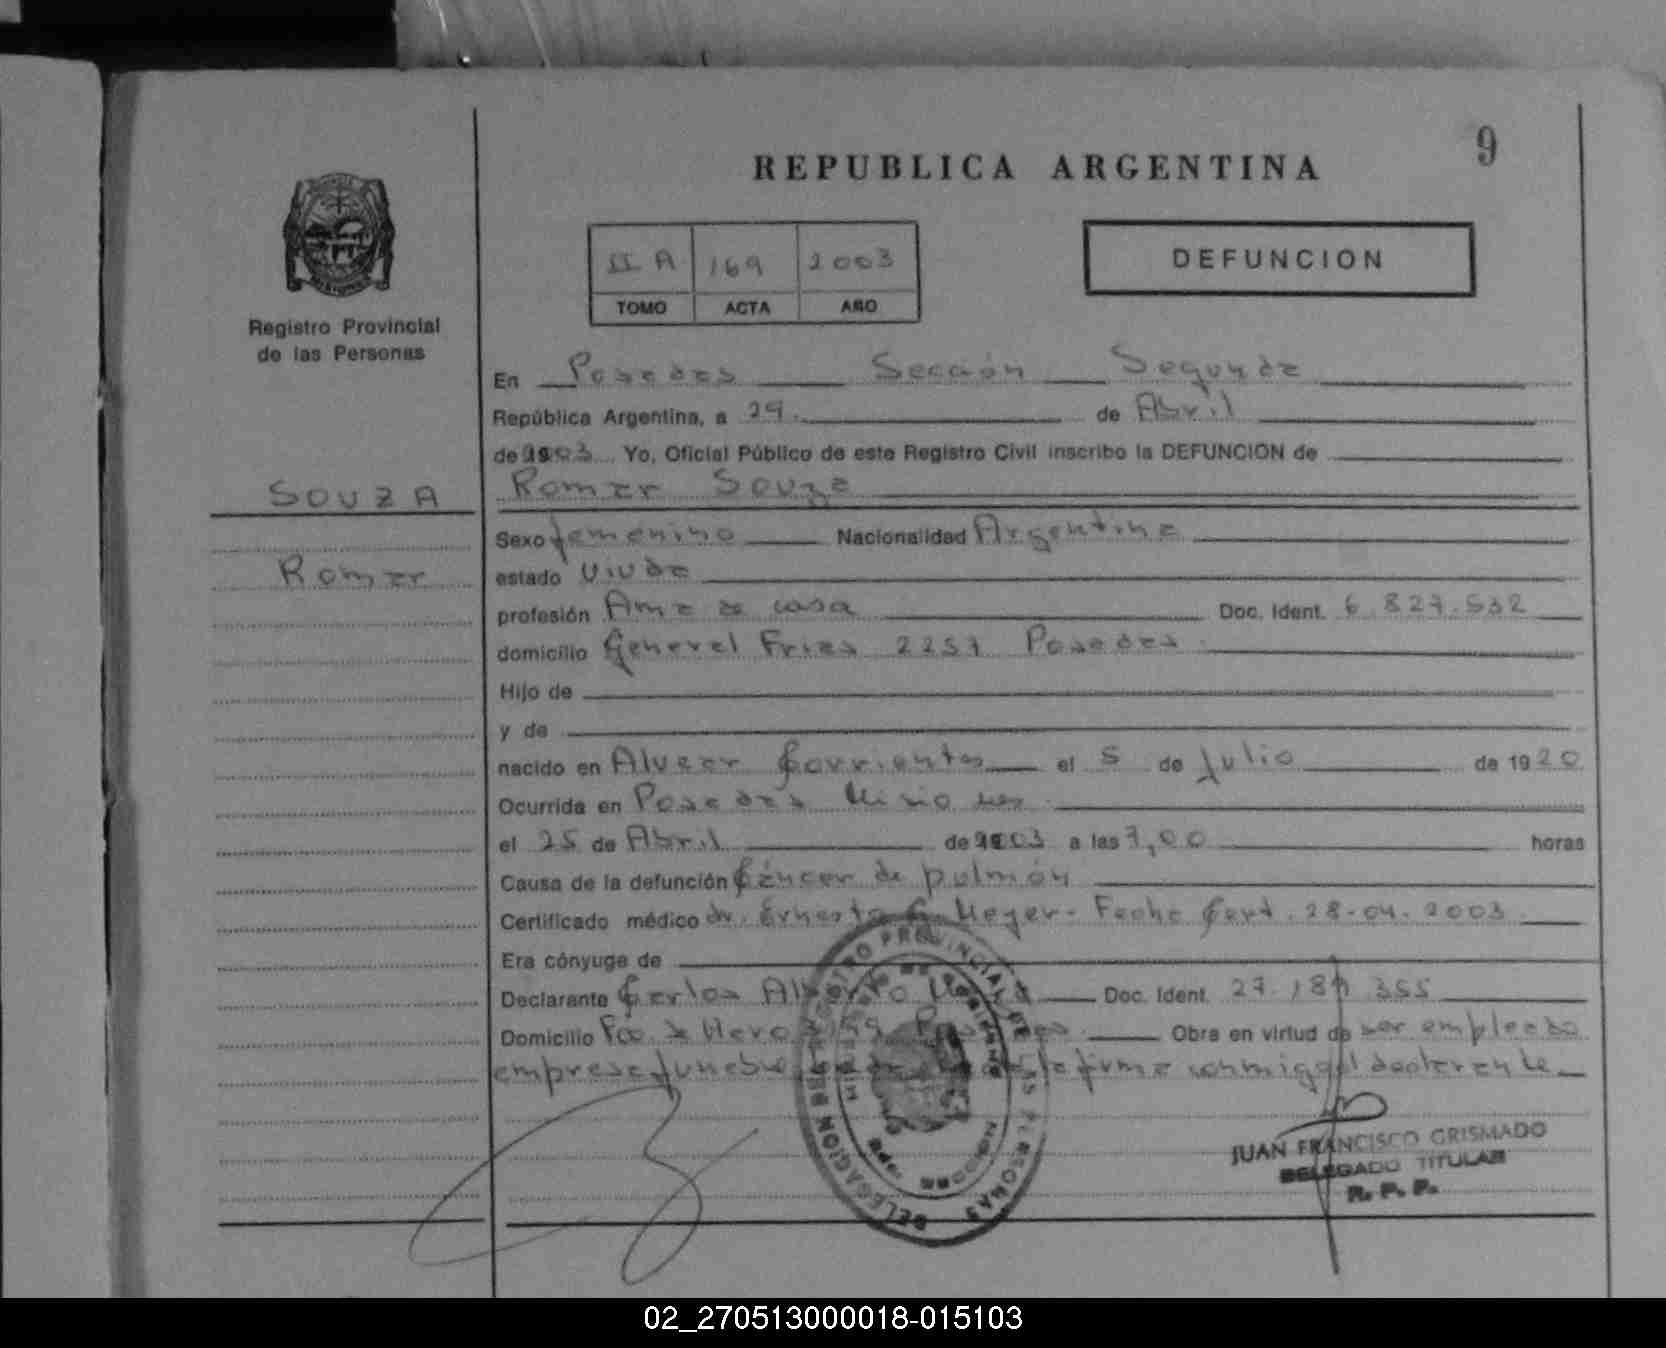 9
REPUBLICA ARGENTINA
II A 169 2003
TOMO ACTA AÑO
DEFUNCION
Registro Provincial
de las Personas
En Posadas Sección Segunda
República Argentina, a 29. de Abril
de 2003 Yo, Oficial Público de este Registro Civil inscribo la DEFUNCION de
SOUZA
Romar Souza
Sexo femenino Nacionalidad Argentina
Romar
estado Viuda
profesión Ama de casa Doc. Ident. 6.827.532
domicilio General Frias 2257 Posadas
Hijo de
y de
nacido en Alvear Corrientes el 5 de Julio de 1920
Ocurrida en Posadas Misiones
el 25 de Abril de 2003 a las 7,00 horas
Causa de la defunción Cáncer de pulmón
Certificado médico dr. Ernesto G. Meyer - Fecha Cert. 28-04-2003
Era cónyuge de
Declarante Carlos Alberto Doc. Ident. 27.189.355
Domicilio Fco de Haro Obra en virtud de ser empleado
empresa funebre firma conmigo el declarante
DELEGACION REGISTRO PROVINCIAL DE LAS PERSONAS
JUAN FRANCISCO GRISMADO
DELEGADO TITULAR
R. P. P.
02_270513000018-015103